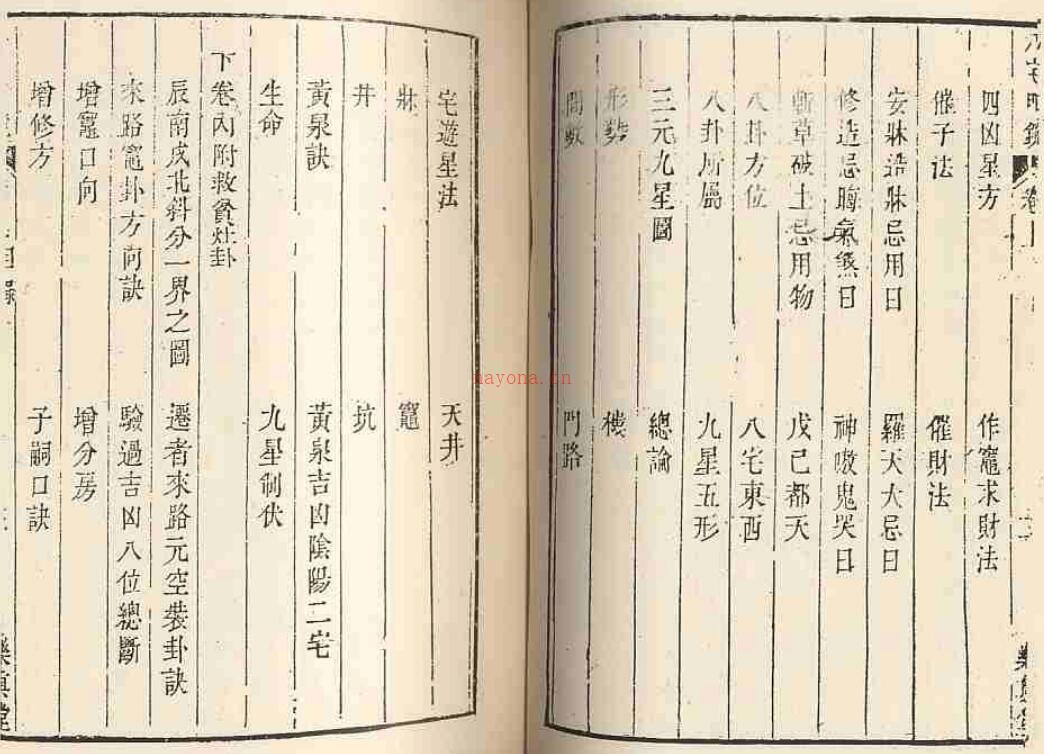 八宅明鏡 卷
四凶星方 作竈求財法
催子法 催財法
安牀造牀忌用日 羅天大忌日
修造忌晦氣煞日 神嗷鬼哭日
斬草破土忌用物 戊己都天
八卦方位 八宅東西
八卦所屬 九星五形
三元九星圖 總論
形勢 樓
間數 門路
宅遊星法 天井
牀 竈
井 坑
黃泉訣 黃泉吉凶陰陽二宅
生命 九星制伏
下卷內附救貧灶卦
辰南戌北斜分一界之圖 遷者來路元空裝卦訣
來路竈卦方向訣 驗過吉凶八位總斷
增竈口向 增分房
增修方 子嗣口訣
樂真堂
nayona.cn